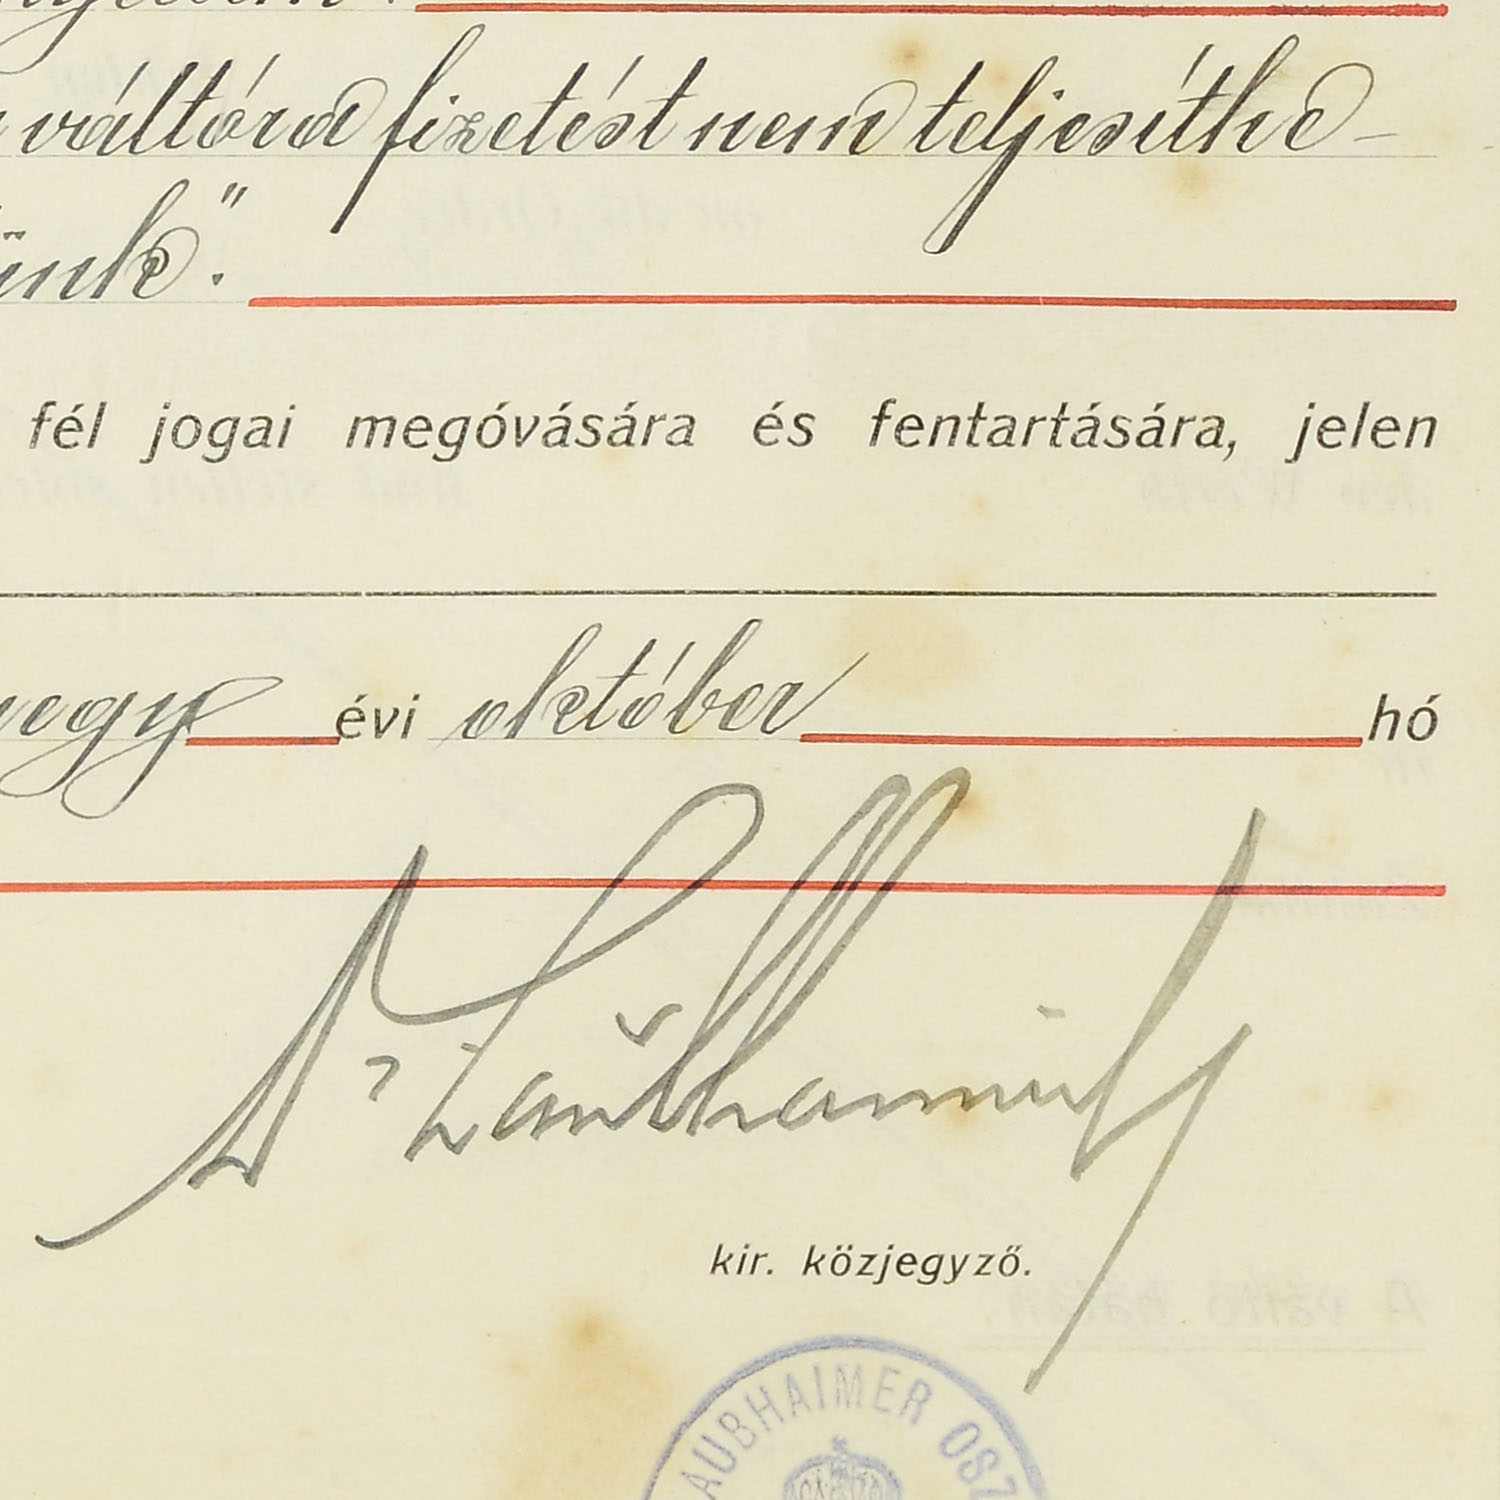 váltóra fizetést nem teljesíthe-
ünk".
fél jogai megóvására és fentartására, jelen
egy évi október hó
Dr
kir. közjegyző.
AUBHAIMER OSZ